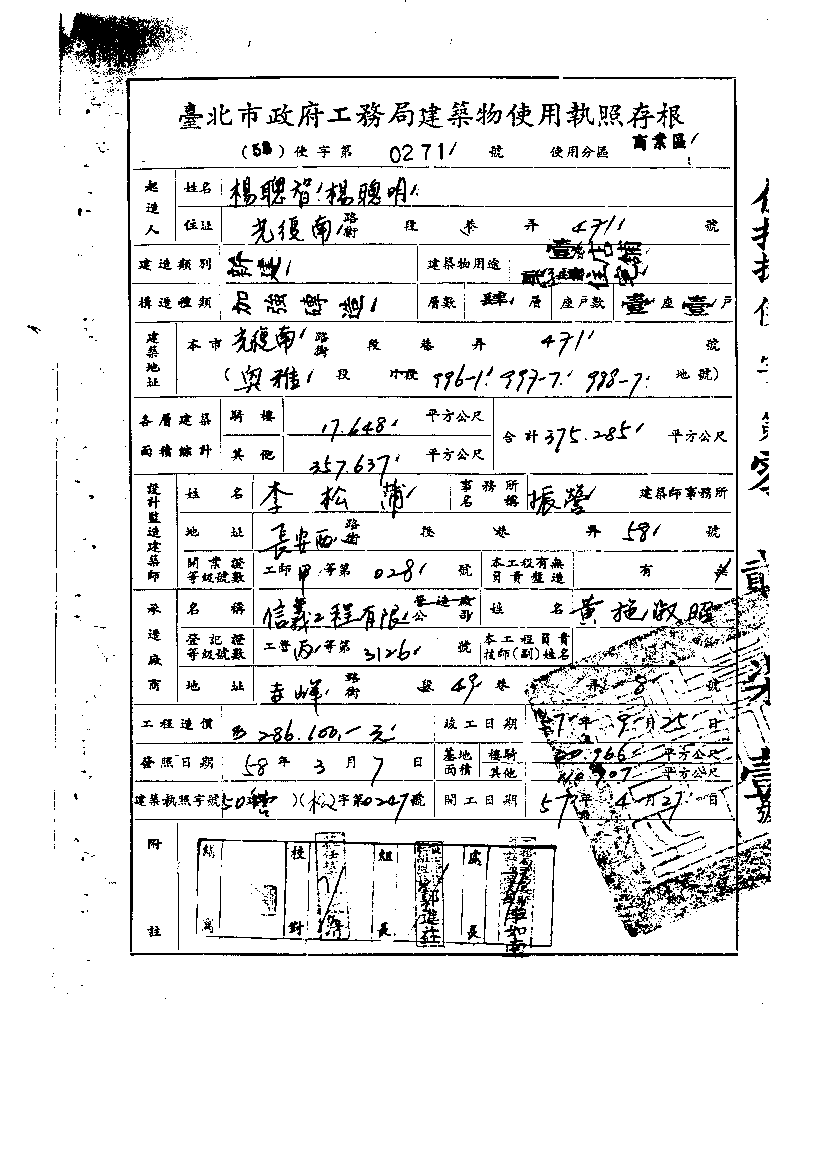 臺北市政府工務局建築物使用執照存根
(58)使字第 0271 號 使用分區 商業區
起造人 姓名 楊聰智 楊聰明
住址 光復南 路街 段 巷 弄 471 號
建造類別 新建 建築物用途 壹 店舖 住宅
構造種類 加強磚造 層數 層 座戶數 壹座壹戶
建築地址 本市 光復南 路街 段 巷 弄 471 號
(興雅 段 小段 996-1 997-7 988-7 地號)
各層建築面積總計 騎樓 17.648 平方公尺 合計 375.285 平方公尺
其他 357.637 平方公尺
設計監造建築師 姓名 李松蒲 事務所名稱 振營 建築師事務所
地址 長安西 路街 段 巷 弄 58 號
開業證等級號數 工師甲等第 028 號 本工程有無負責監造 有 無
承造廠商 名稱 信義工程有限 營造廠公司 姓名 黃施淑昭
登記證等級號數 工營丙等第 3126 號 本工程負責技師(副)姓名
地址 路街 段 49 巷 弄 8 號
工程造價 286.100,- 元 竣工日期 57年9月25日
發照日期 58年3月7日 基地面積 樓騎 20.966 平方公尺
其他 907 平方公尺
建築執照字號 50 (松)字第0247號 開工日期 57年4月27日
附註 繕寫 校對 組長 處長